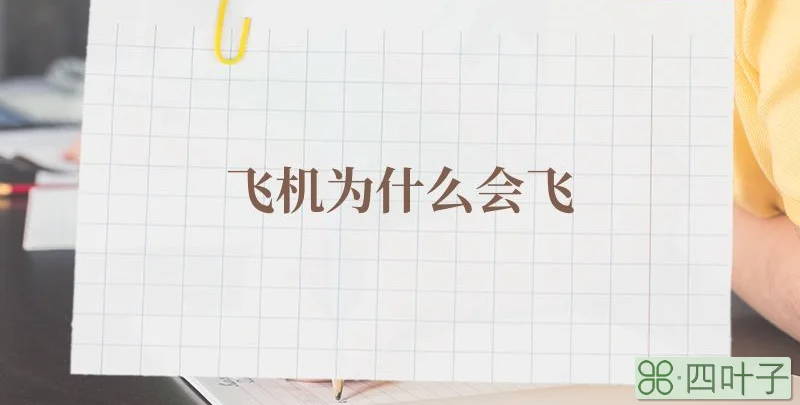 飞机为什么会飞
四叶子